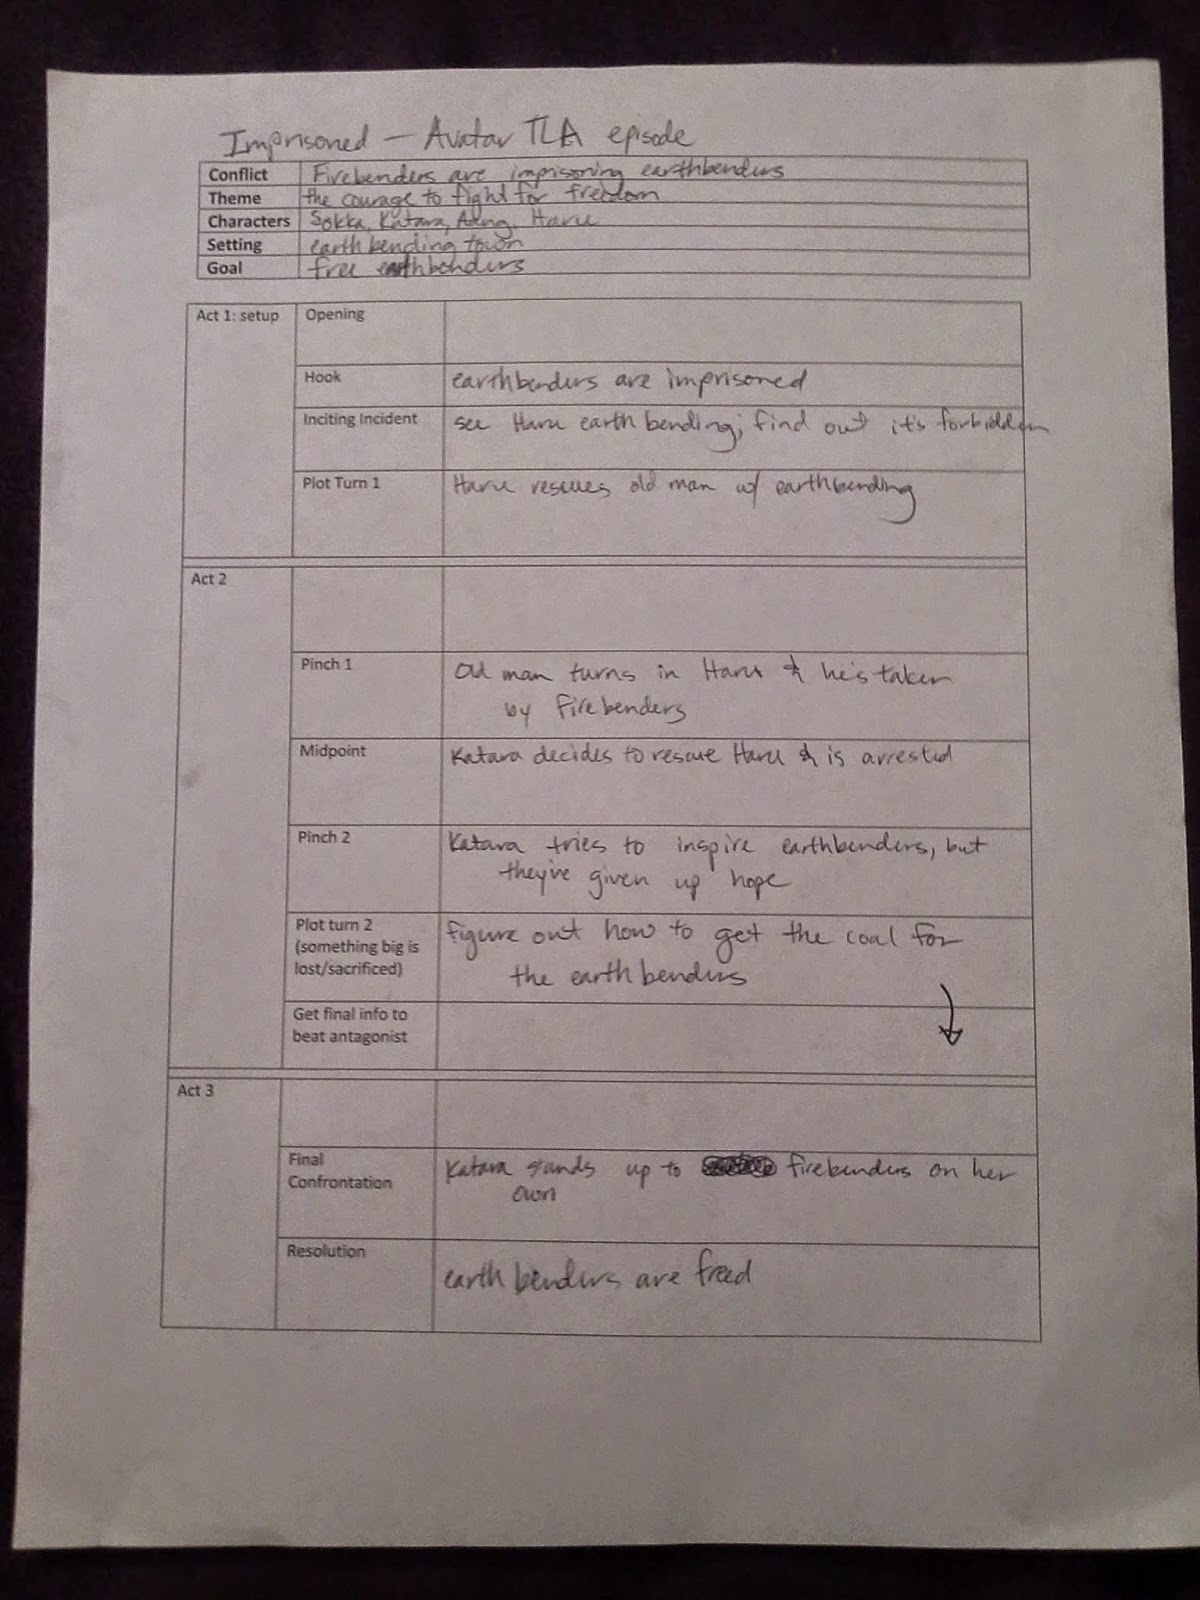 Imprisoned — Avatar TLA episode
Conflict Firebenders are imprisoning earthbenders
Theme the courage to fight for freedom
Characters Sokka, Katara, Aang, Haru
Setting earth bending town
Goal free earthbenders
Act 1: setup Opening
Hook earthbenders are imprisoned
Inciting Incident see Haru earth bending; find out it's forbidden
Plot Turn 1 Haru rescues old man w/ earthbending
Act 2
Pinch 1 Old man turns in Haru & he's taken
by firebenders
Midpoint Katara decides to rescue Haru & is arrested
Pinch 2 Katara tries to inspire earthbenders, but
they've given up hope
Plot turn 2 figure out how to get the coal for
(something big is
lost/sacrificed) the earth benders
Get final info to
beat antagonist
Act 3
Final Katara stands up to firebenders on her
Confrontation own
Resolution
earth benders are freed